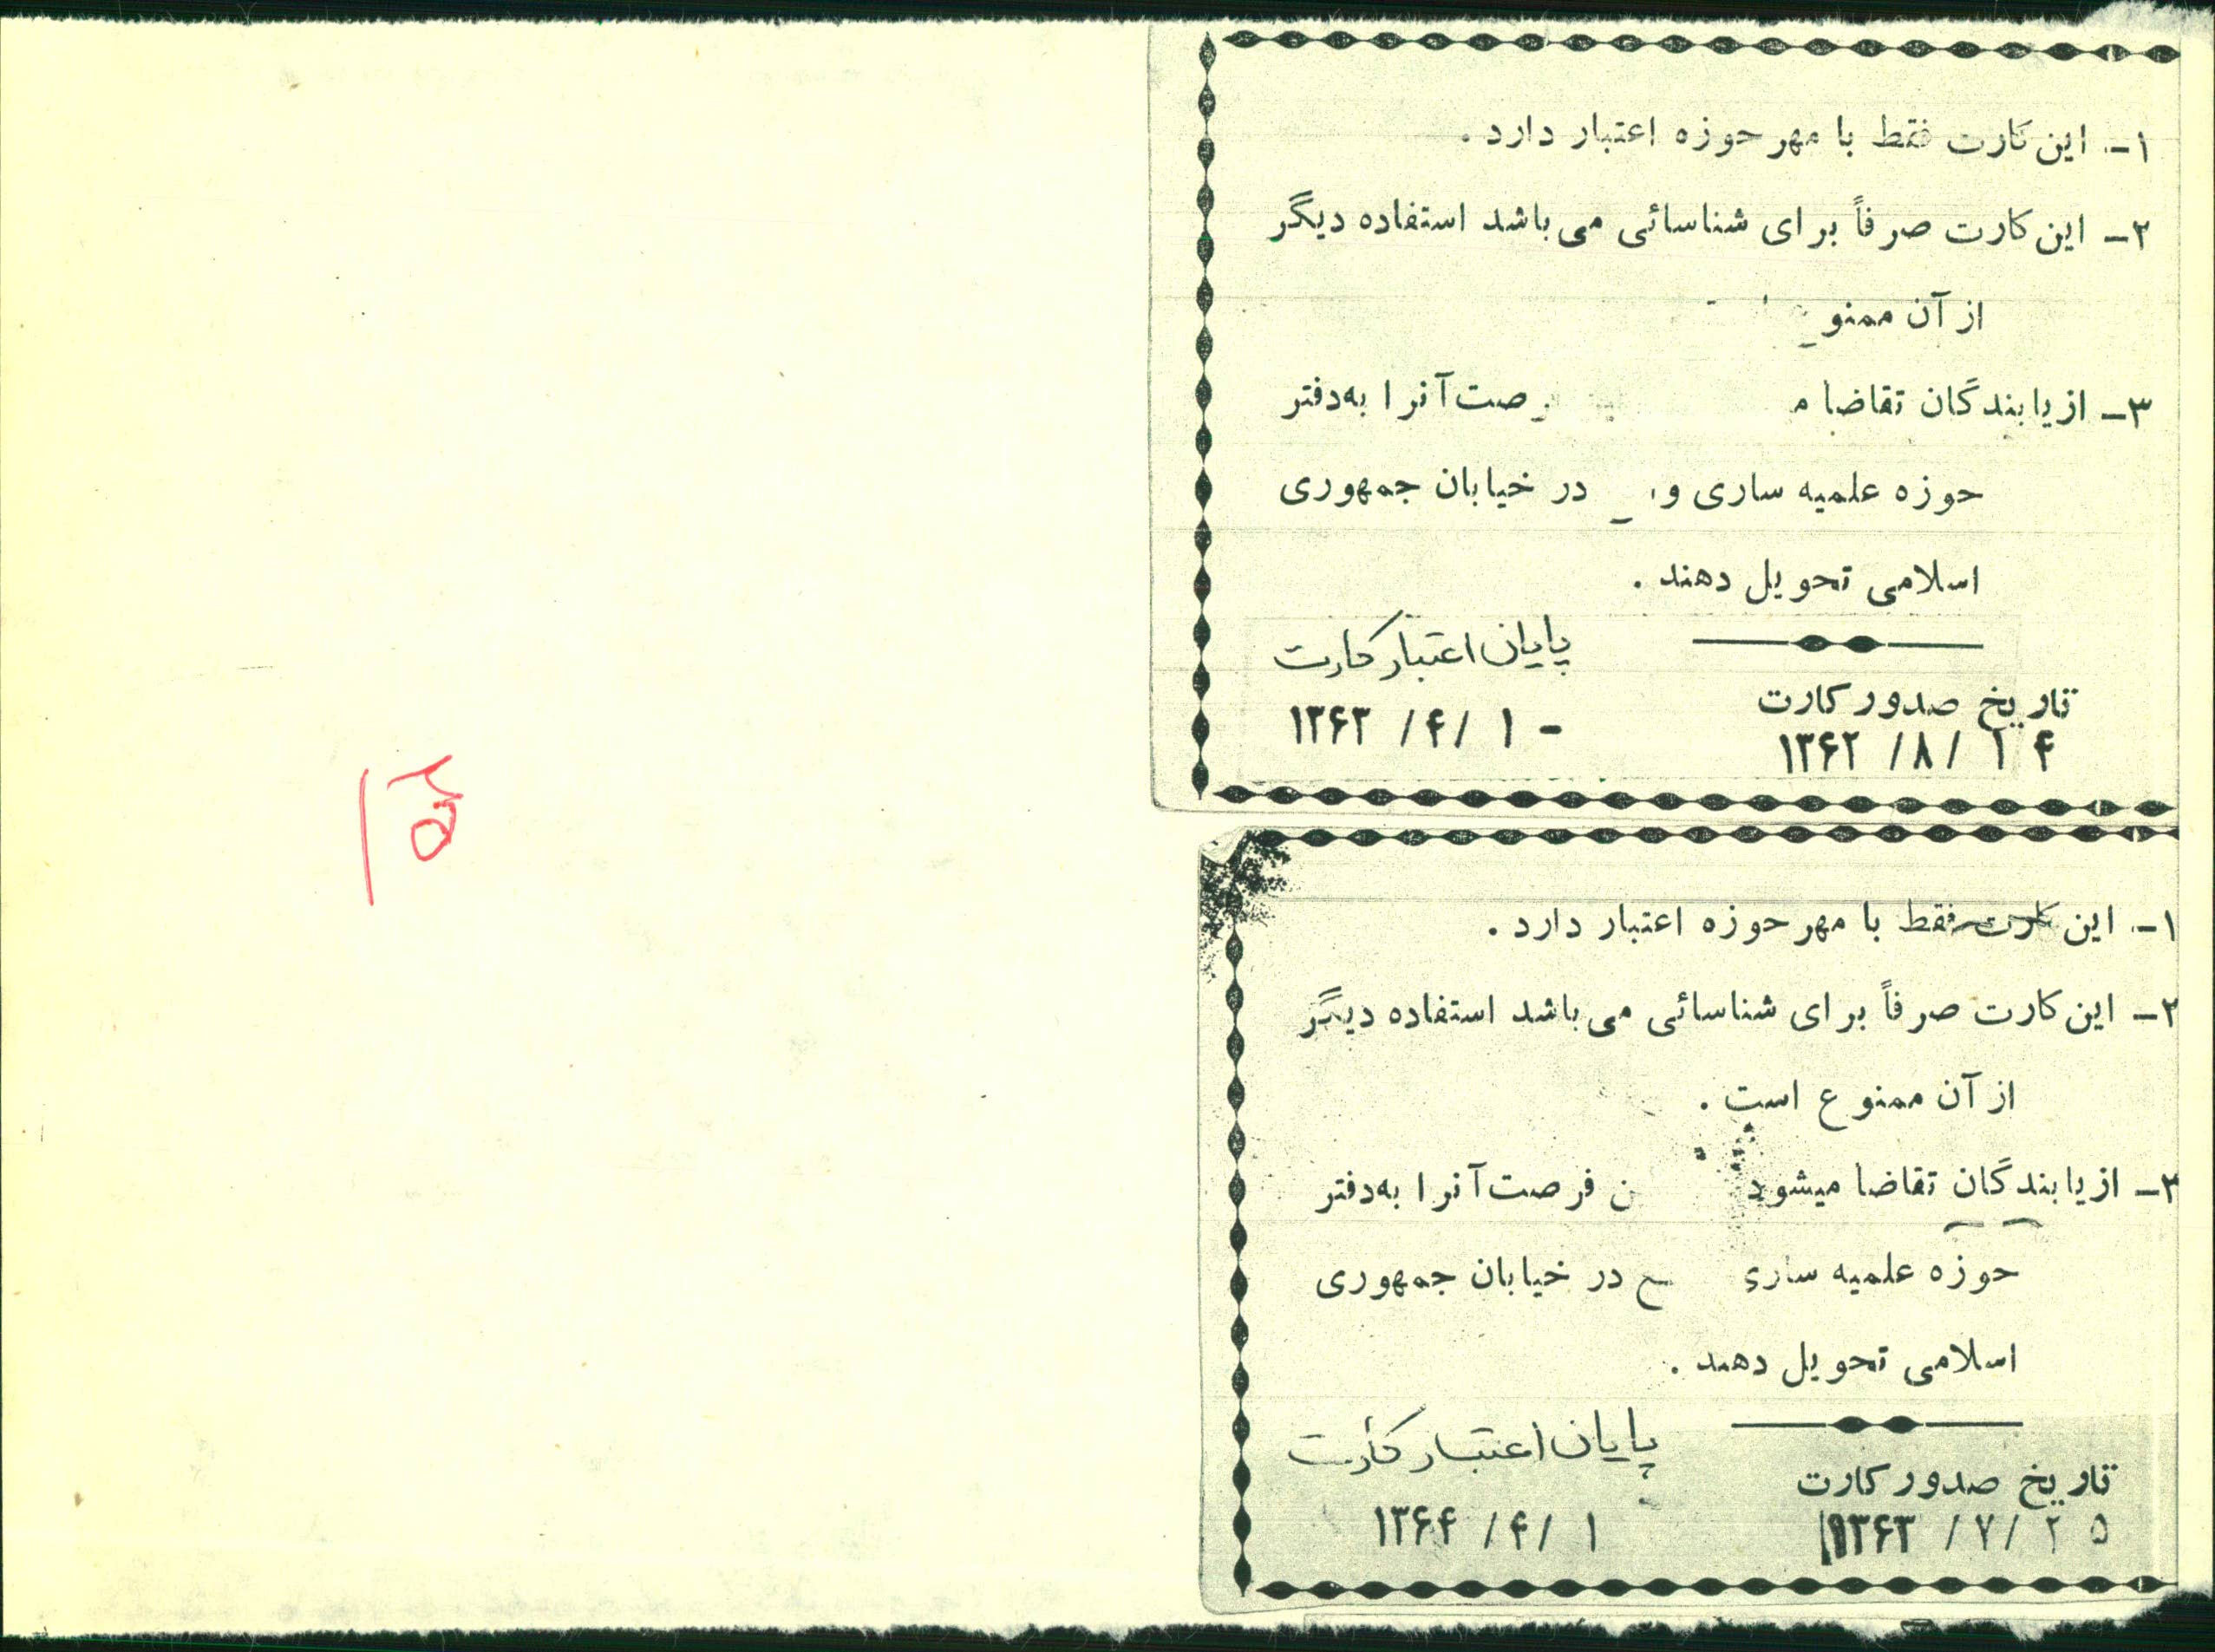 ۱- این کارت فقط با مهر حوزه اعتبار دارد .
۲- این کارت صرفاً برای شناسائی می‌باشد استفاده دیگر
از آن ممنو
۳- از یابندگان تقاضا م صت آنرا به‌دفتر
حوزه علمیه ساری و در خیابان جمهوری
اسلامی تحویل دهند .
پایان اعتبار کارت
۱۳۶۳ /۴/ ۱ -
تاریخ صدور کارت
۱۳۶۲ /۸/ ۱ ۴
۱- این کارت فقط با مهر حوزه اعتبار دارد .
۲- این کارت صرفاً برای شناسائی می‌باشد استفاده دیگر
از آن ممنوع است .
۳- از یابندگان تقاضا میشود ن فرصت آنرا به‌دفتر
حوزه علمیه ساری ع در خیابان جمهوری
اسلامی تحویل دهند .
پایان اعتبار کارت
۱۳۶۴ /۴/ ۱
تاریخ صدور کارت
۱۳۶۳ /۷/ ۲ ۵